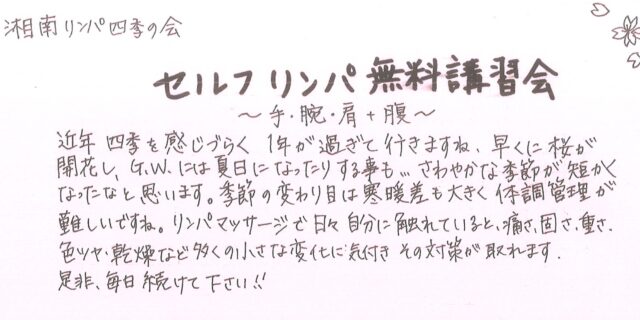 湘南リンパ四季の会
セルフリンパ無料講習会
～手・腕・肩+腹～
近年 四季を感じづらく 1年が過ぎて行きますね、早くに桜が
開花し、G.W.には夏日になったりする事も… さわやかな季節が短かく
なったなと思います。季節の変わり目は寒暖差も大きく 体調管理が
難しいですね。リンパマッサージで日々自分に触れていると、痛さ、固さ、重さ、
色ツヤ、乾燥など多くの小さな変化に気付き その対策が取れます.
是非、毎日続けて下さい!!